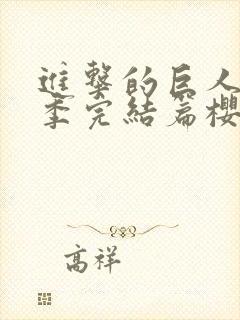 進擊的巨人
季完結篇櫻
高祥